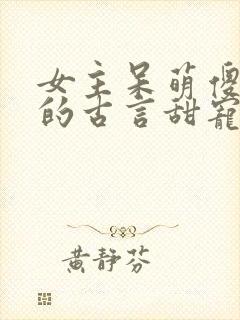 女主呆萌傻
的古言甜寵
黃靜芬